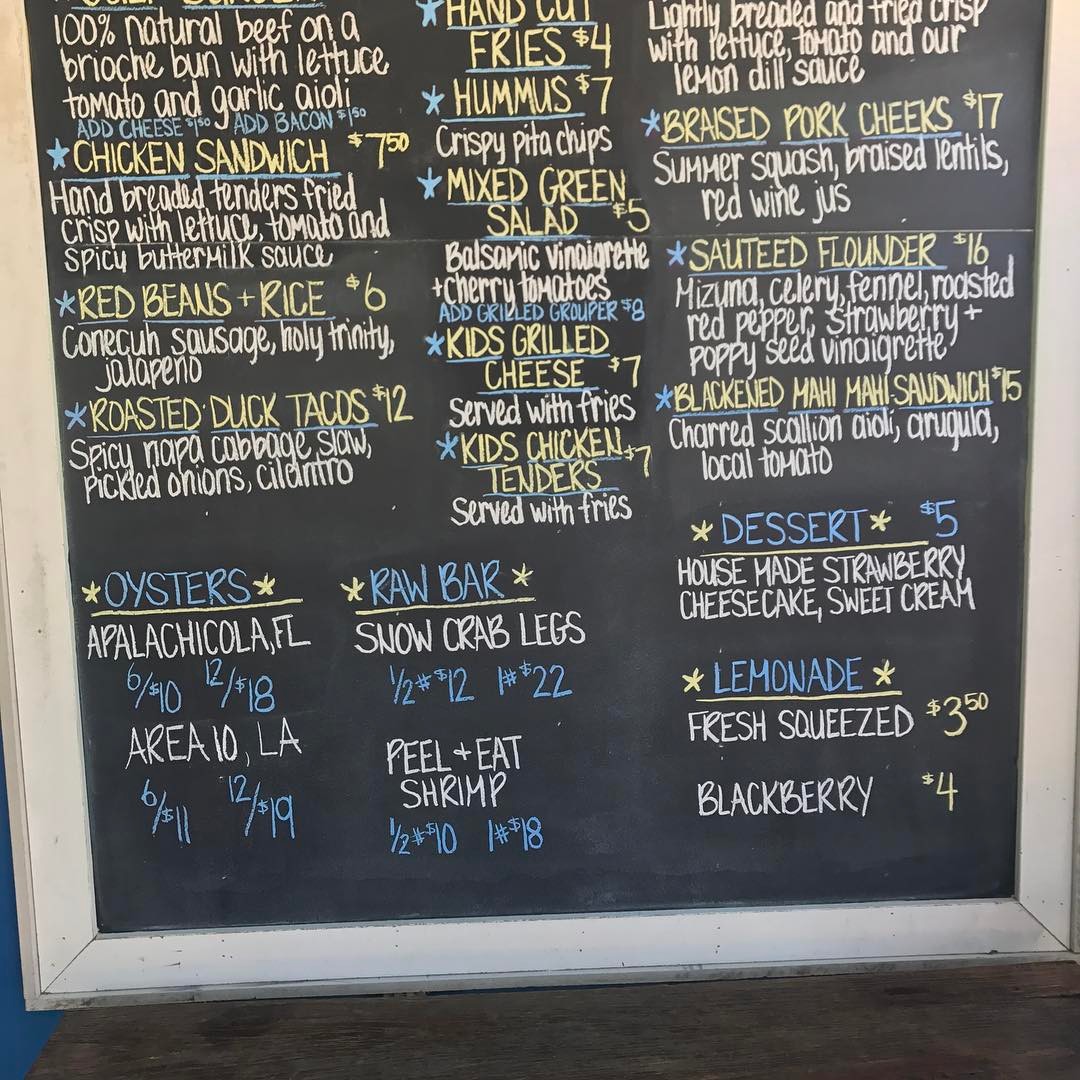 100% natural beef on a
brioche bun with lettuce
tomato and garlic aioli
ADD CHEESE $1.50 ADD BACON $1.50
*CHICKEN SANDWICH $7.50
Hand breaded tenders fried
crisp with lettuce, tomato and
spicy buttermilk sauce
*RED BEANS + RICE $6
Conecuh sausage, holy trinity,
jalapeno
*ROASTED DUCK TACOS $12
Spicy napa cabbage slaw,
pickled onions, cilantro
*HAND CUT
FRIES $4
*HUMMUS $7
Crispy pita chips
*MIXED GREEN
SALAD $5
Balsamic vinaigrette
+cherry tomatoes
ADD GRILLED GROUPER $8
*KIDS GRILLED
CHEESE $7
Served with fries
*KIDS CHICKEN $7
TENDERS
Served with fries
Lightly breaded and fried crisp
with lettuce, tomato and our
lemon dill sauce
*BRAISED PORK CHEEKS $17
Summer squash, braised lentils,
red wine jus
*SAUTEED FLOUNDER $16
Mizuna, celery, fennel, roasted
red pepper, strawberry +
poppy seed vinaigrette
*BLACKENED MAHI MAHI SANDWICH $15
Charred scallion aioli, arugula,
local tomato
*OYSTERS*
APALACHICOLA, FL
6/$10 12/$18
AREA 10, LA
6/$11 12/$19
*RAW BAR*
SNOW CRAB LEGS
1/2# $12 1# $22
PEEL + EAT
SHRIMP
1/2# $10 1# $18
*DESSERT* $5
HOUSE MADE STRAWBERRY
CHEESECAKE, SWEET CREAM
*LEMONADE*
FRESH SQUEEZED $3.50
BLACKBERRY $4